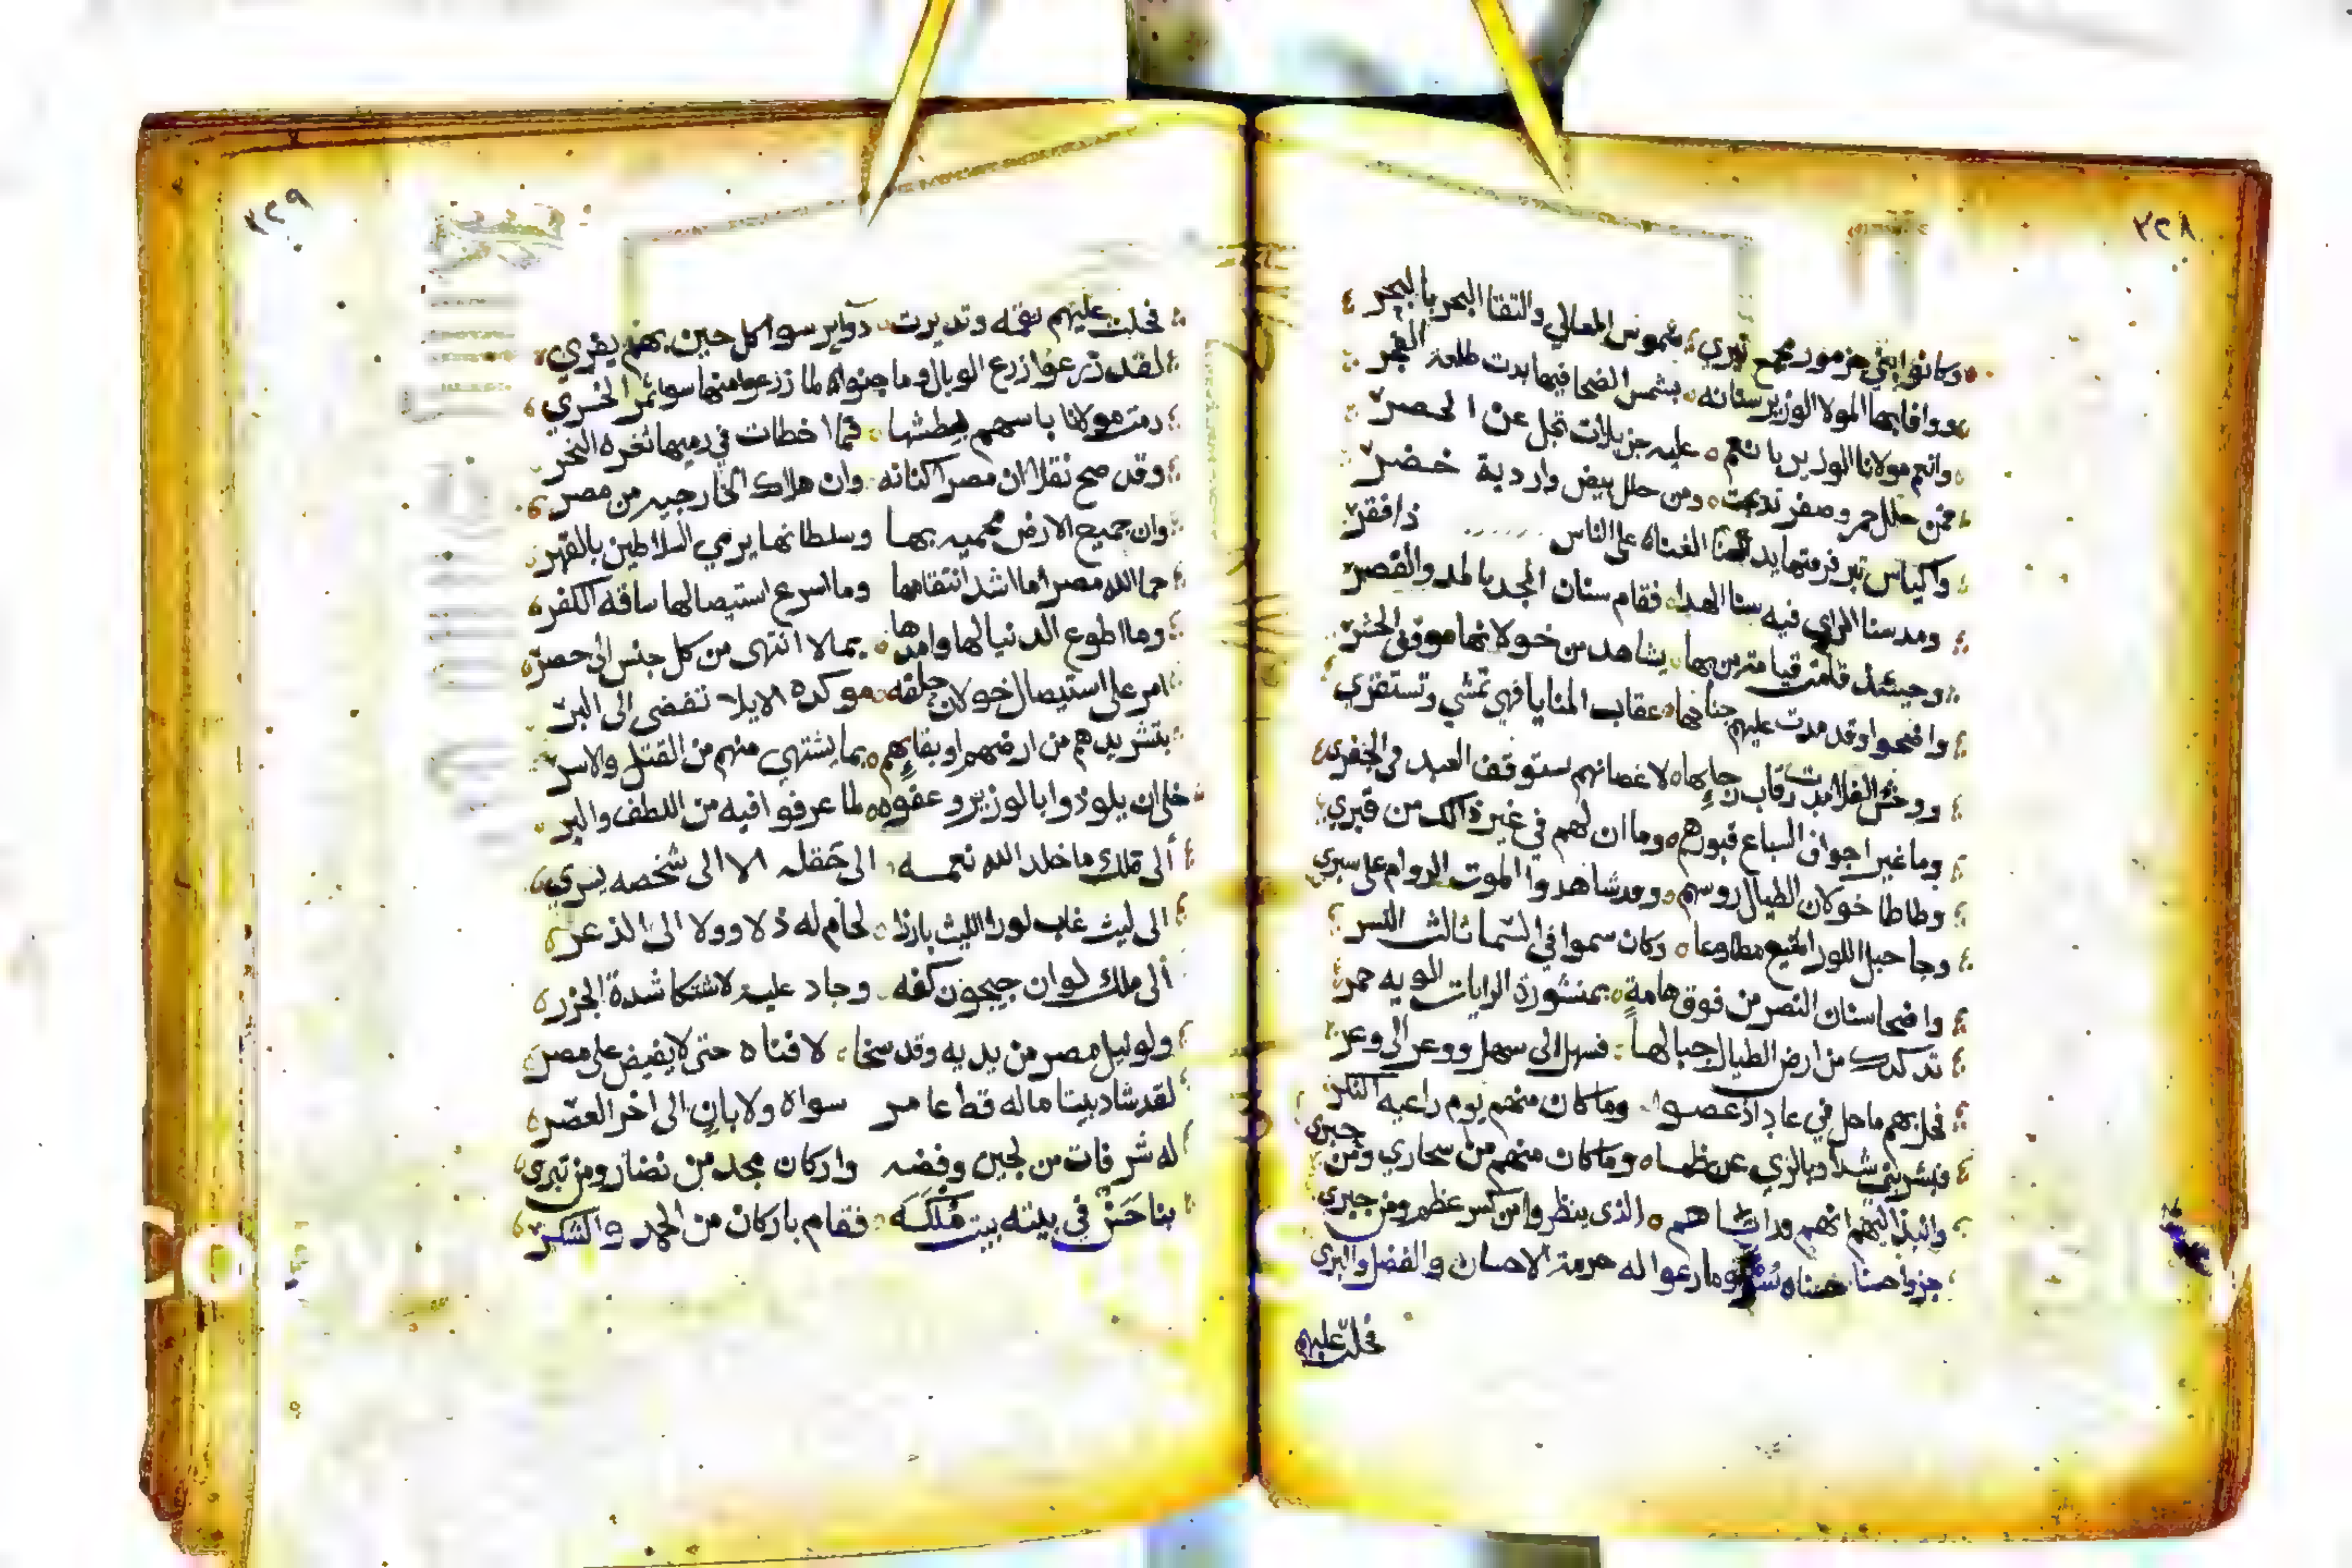 ٢٢٨
وكانوا بني جزمور مجمع تبري بثموس المعالي والتقا البحر بالبحر
ووافا بها المولا الوزير سنانه بشمس الضحا فيها بدت طلعة الفجر
وانعم مولانا الوزير بانعم عليه جزيلات تجل عن الحصر
فمن حلل حمر وصفر تدبجت ومن حلل بيض واردية خضر
واكياس تبر فرقتها يد الغناه على الناس ذا فقر
ومد سنا الراي فيه سنا الهدا فقام سنان المجد بالمد والقصر
وحينئذ قامت قيامة من بها يشاهد من خولانها موقف الحشر
واضحوا وقد مدت عليهم جناحها عقاب المنايا فهي تمشي وتستقري
ووحش الفلا مدت رقاب رجابها لاغصانهم ستوقف العبد في الجفر
وما غير اجواف السباع قبورهم وما ان لهم في غير ذالك من قبري
وطاطا خولان الطيال روسهم وقد شاهدوا الموت الزوام على سبري
وجا جبل اللوز المنيع مطاوعا وكان سموا في السما ثالث النسر
واضحا سنان النصر من فوق هامة بمنشورة الرايات الويه حمر
تدكدك من ارض الطيال جبالها فسهل الى سهل ووعر الى وعر
فحل بهم ما حل في عاد اذ عصوا وما كان منهم يوم راعيه النكر
فبشر بني شداد بالزي عن ظما وما كان منهم من سحاري ومن جبري
وانبذ اليهم انهم الذي ينظروا من كسر عظم ومن جبري
جزوا حسنا حسناه وما رعوا له حرمة الاحسان والفضل والبري
فحلت عليهم
٢٢٩
فحلت عليهم نقمه وتديرت دواير سوا كل حين بهم يفري
لقد زرعوا زرع الوبال وما جنواه لما زرعوا منها سوا ثمر الخسري
رمت مولانا باسهم بطشها فما اخطات في رميها ثغره النحر
وقد صح نقلا ان مصرا كنانه وان هلاك الخارجيه من مصر
وان جميع الارض محميه بها وسلطانها يرمي السلاطين بالقهر
حما الله مصرا ما اشد انتقامها وما اسرع استيصالها سافه الكفر
وما اطوع الدنيا لها وامدها بما لا انتهى من كل جنس الى حصر
امر على استيصال خولان حلفه موكده الايلا تفضى الى البر
بتشريدهم من ارضهم او بقايهم بما يشتهي منهم من القتل والاسر
خلا ان يلوذوا بالوزير وعفوه لما عرفوا فيه من اللطف والبر
ألى ملك ما خلد الله نعمه الى حقله الا الى شخصه يسري
الى ليث غاب لو راا الليث بارزا لخام له ذلا وولا الى الذعر
ألى ملك لو ان جيحون كفه وجاد عليه لاشتكا شدة الجزر
ولو نيل مصر من يديه وقد سخا لافناه حتى لا يفيض على مصر
لقد شاد بيتا ما له قط عامر سواه ولا بان الى اخر العصر
له شرفات من لجين وفضه واركان مجد من نضار ومن تبري
بنا حسن في بيته بيت ملكه فقام باركان من الحمد والشكر